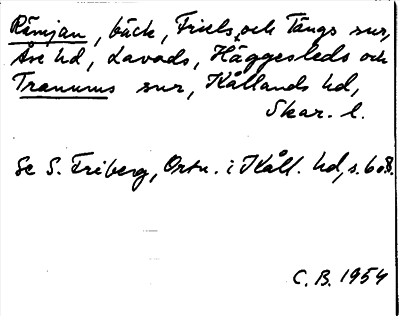 Råmjan, bäck, Friels och Tängs snr,
Åse hd, Lavads, Häggesleds och
Tranums snr, Kållands hd,
Skar. l.
Se S. Friberg, Ortn. i Kåll. hd, s. 608.
C.B. 1954